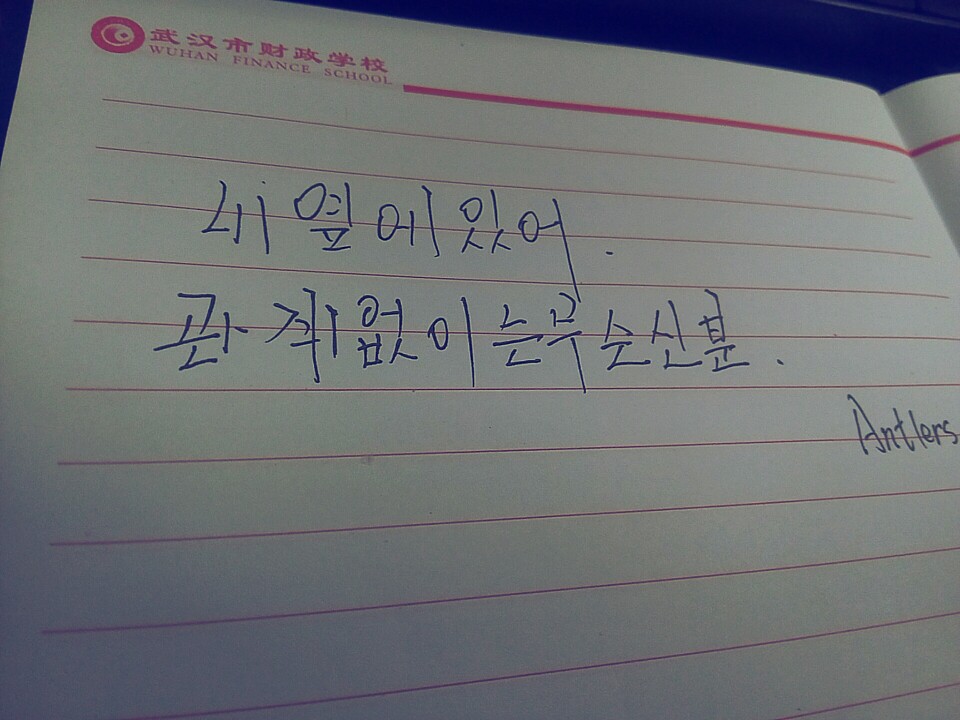 武汉市财政学校
WUHAN FINANCE SCHOOL
네 옆에 있어.
관계없이는무슨신분.
Antlers